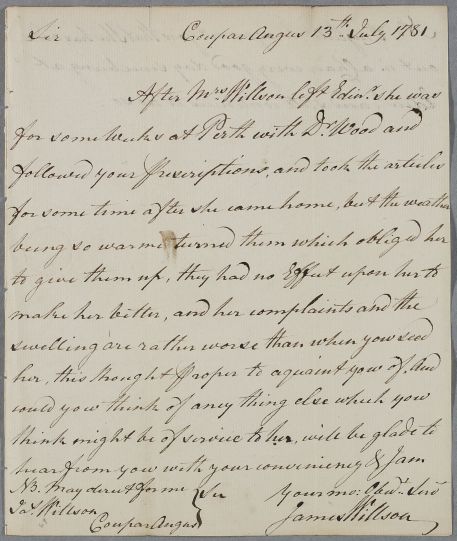 Sir Coupar Angus 13th. July 1781
After Mrs Willson left Edinr. she was
for some weeks at Perth with Dr. Wood and
followed your Prescriptions, and took the articles
for some time after she came home, but the weather
being so warm turned them which obliged her
to give them up, they had no Effect upon her to
make her bitter, and her complaints and the
swelling are rather worse than when you seed
her, this thought proper to aquaint you of. And
could you think of aney thing else which you
think might be of service to her, will be glade to
hear from you with your conviniency & I am
NB. May dereut for me } Sir your mo: Obedt. Servt
Jas. Willson
Coupar Angus James Willson